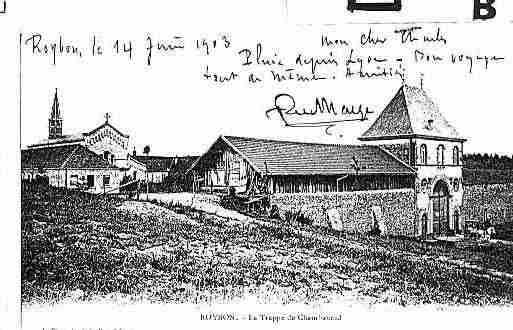 B
Roybon, le 14 Juin 1903
mon cher Charles
Pluie depuis Lyon - Bon voyage
tout de même. Amitiés
ROYBON. - La Trappe de Chambarand